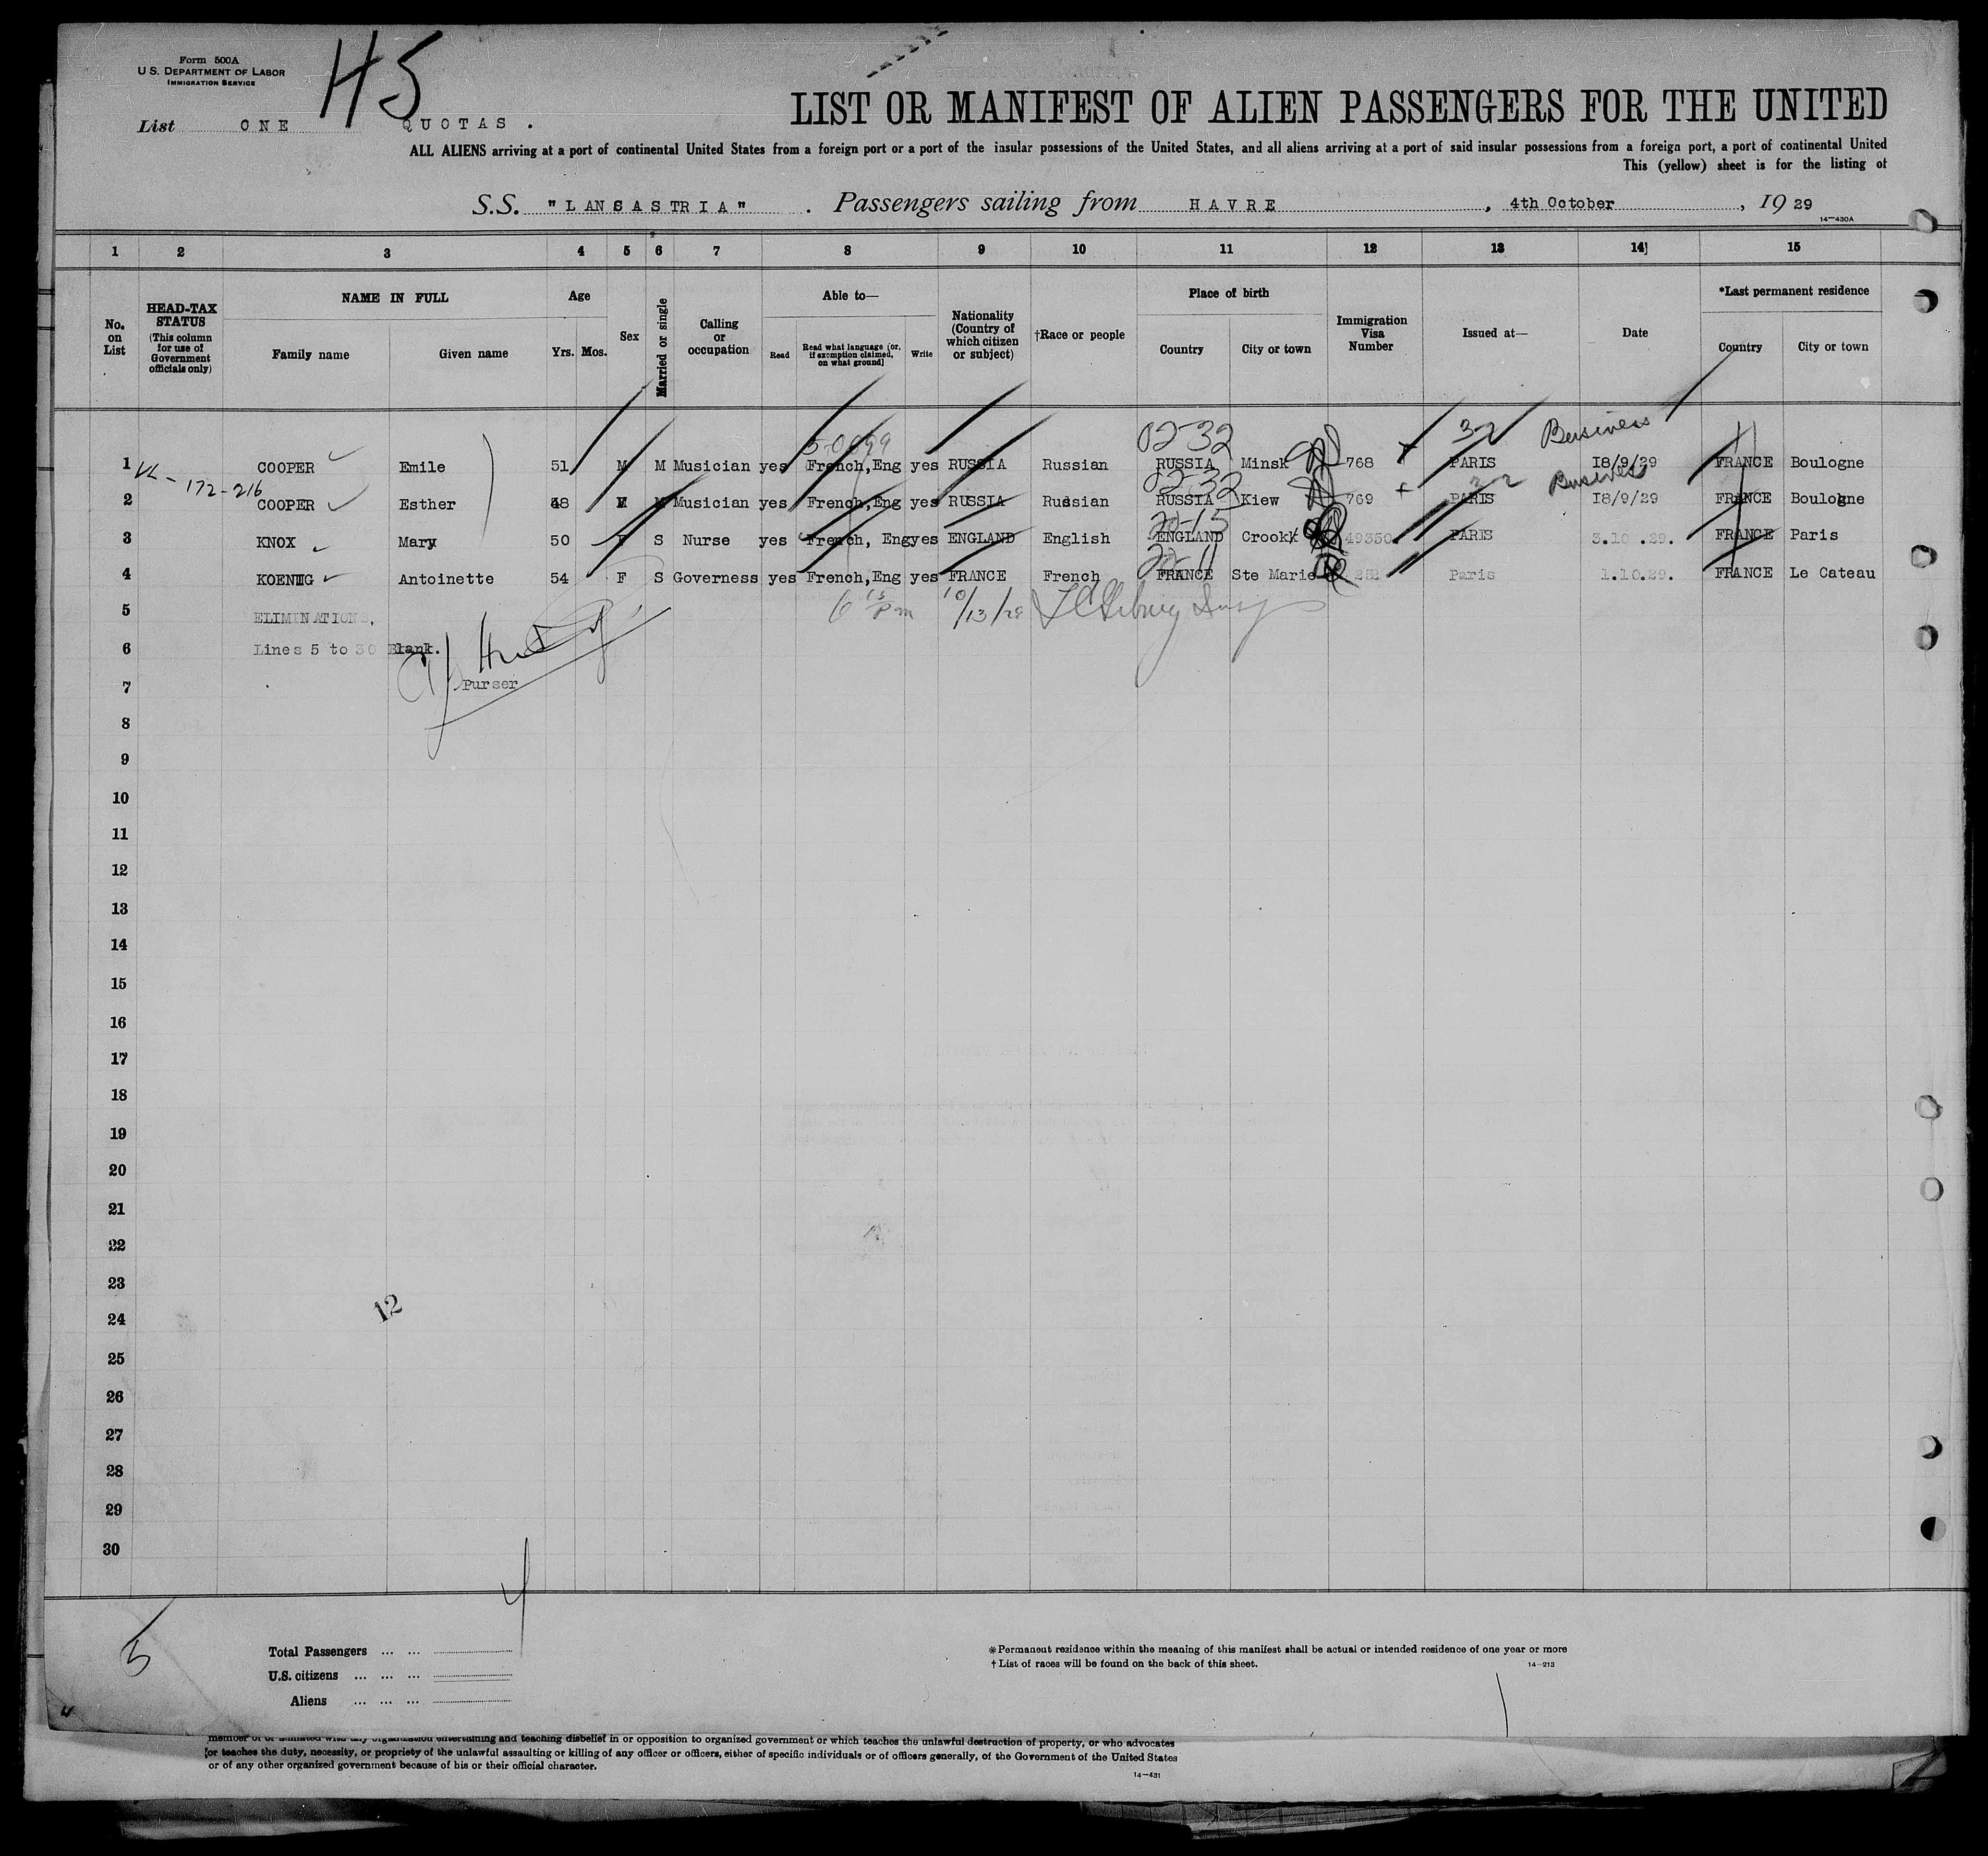 Form 500A
U.S. DEPARTMENT OF LABOR
IMMIGRATION SERVICE
H5
List ONE QUOTAS.
LIST OR MANIFEST OF ALIEN PASSENGERS FOR THE UNITED
ALL ALIENS arriving at a port of continental United States from a foreign port or a port of the insular possessions of the United States, and all aliens arriving at a port of said insular possessions from a foreign port, a port of continental United
This (yellow) sheet is for the listing of
S.S. "LANSASTRIA". Passengers sailing from HAVRE, 4th October, 19 29
14—430A
1 2 3 4 5 6 7 8 9 10 11 12 13 14 15
No. on List
HEAD-TAX STATUS (This column for use of Government officials only)
NAME IN FULL
Family name Given name
Age
Yrs. Mos.
Sex
Married or single
Calling or occupation
Able to—
Read Read what language (or, if exemption claimed, on what ground) Write
Nationality (Country of which citizen or subject)
†Race or people
Place of birth
Country City or town
Immigration Visa Number
Issued at—
Date
*Last permanent residence
Country City or town
5-0099 02-32 32 Business
1 COOPER Emile 51 M M Musician yes French,Eng yes RUSSIA Russian RUSSIA Minsk 768 PARIS I8/9/29 FRANCE Boulogne
172-216 02-32 32 Business
2 COOPER Esther 48 F M Musician yes French,Eng yes RUSSIA Russian RUSSIA Kiew 769 PARIS I8/9/29 FRANCE Boulogne
20-15
3 KNOX Mary 50 F S Nurse yes French, Eng yes ENGLAND English ENGLAND Crook 49350 PARIS 3.10.29. FRANCE Paris
20-11
4 KOENIG Antoinette 54 F S Governess yes French,Eng yes FRANCE French FRANCE Ste Marie 252 Paris 1.10.29. FRANCE Le Cateau
5 ELIMINATIONS, 6 15 pm 10/13/29
6 Lines 5 to 30 Blank.
7 Purser
8
9
10
11
12
13
14
15
16
17
18
19
20
21
22
23
12
24
25
26
27
28
29
30
4
5
Total Passengers ... ...
U.S. citizens ... ... ...
Aliens ... ... ...
*Permanent residence within the meaning of this manifest shall be actual or intended residence of one year or more
† List of races will be found on the back of this sheet.
14—213
member of or affiliated with any organization entertaining and teaching disbelief in or opposition to organized government or which teaches the unlawful destruction of property, or who advocates
or teaches the duty, necessity, or propriety of the unlawful assaulting or killing of any officer or officers, either of specific individuals or of officers generally, of the Government of the United States
or of any other organized government because of his or their official character.
14—431